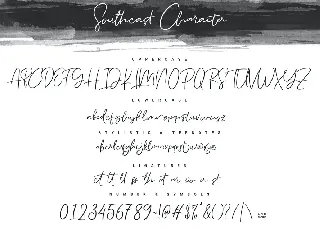 Southeast Character
UPPERCASE
ABCDEFGHIJKLMNOPQRSTUVWXYZ
LOWERCASE
abcdefghijklmnopqrstuvwxyz
STYLISTIC ALTERNATES
abcdefghijklmnopqrstuvwxyz
LIGATURES
NUMBER & SYMBOLS